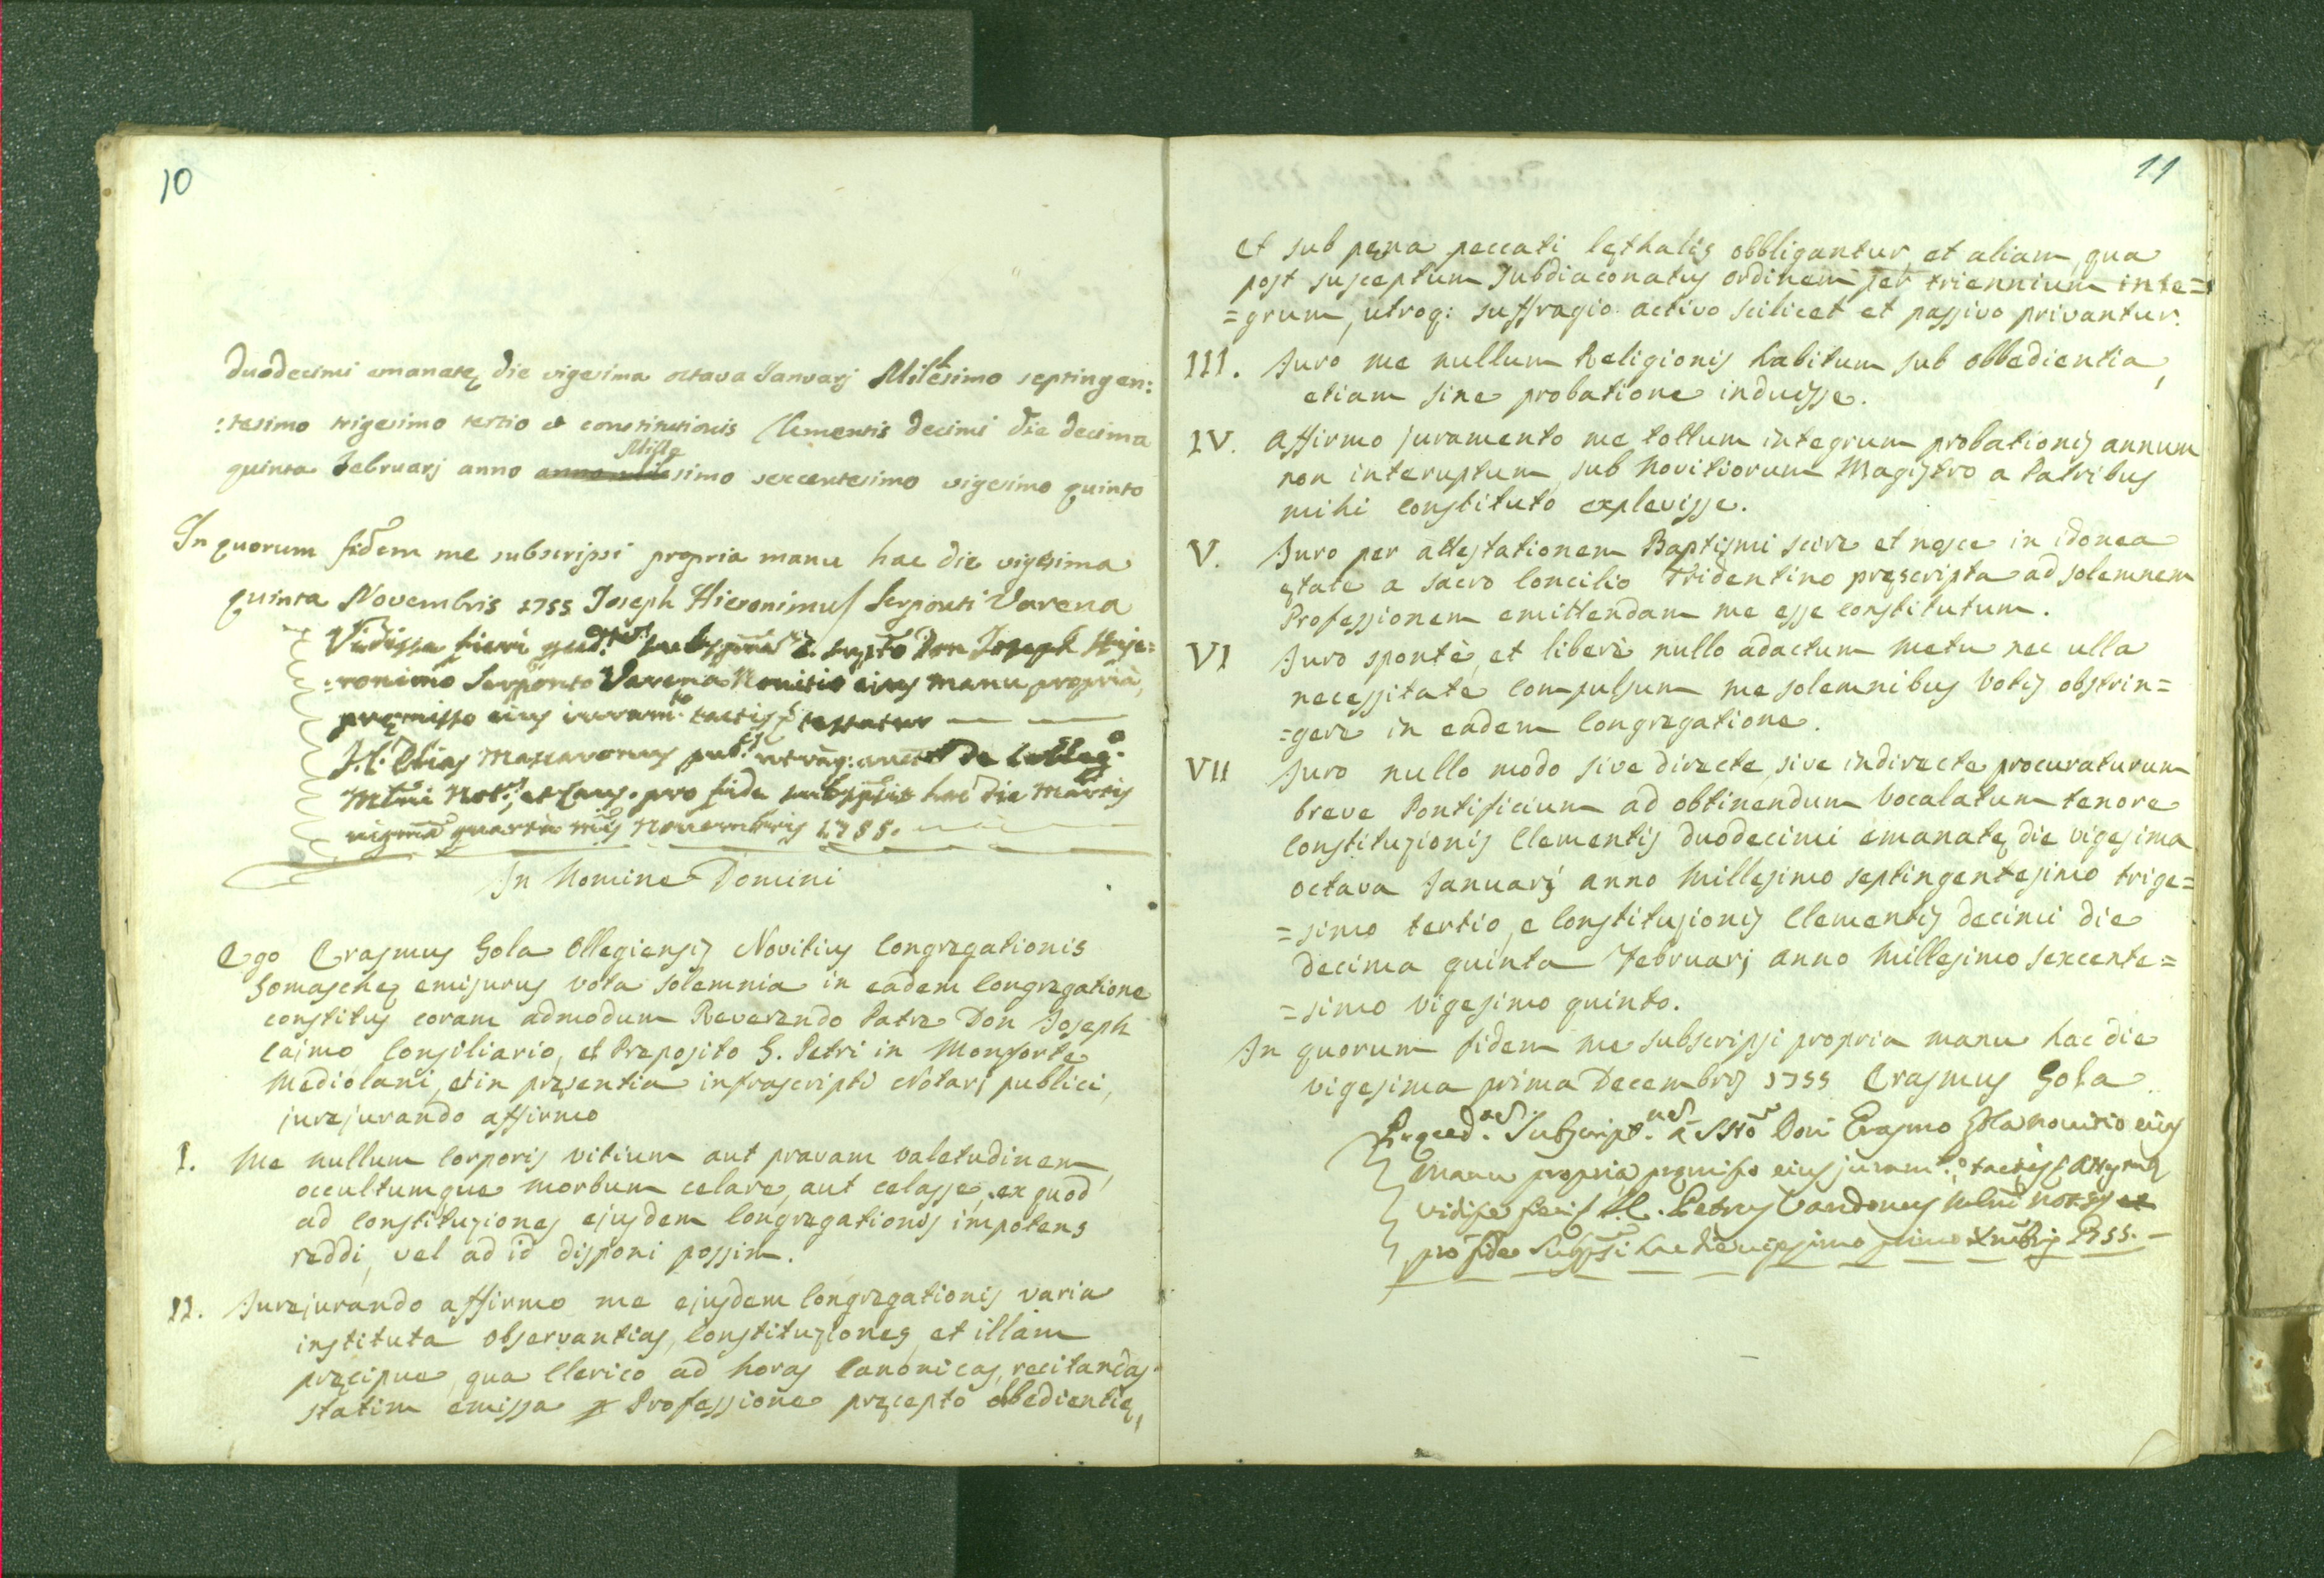 10
duodecimi emanatę die vigesima octava Januarj Milesimo septingen:
:tesimo trigesimo tertio et constitutionis Clementis decimi die decima
Mille
quinta Februarj anno simo sexcentesimo vigesimo quinto
In quorum fidem me subscripsi propria manu hac die vigesima
quinta Novembris 1755 Joseph Hieronimus Serponti Varena
Vidisse fieri Don Joseph Hije=
=ronimo Serponto Varena Novitio eius manu propria,
pręmisso eius iuram.to tactis
J. C. Elias de Colleg.o
pro fide hac die Martis
quarta Novembris 1755.
In Nomine Domini
Ego Erasmus Sola Ollegiensis Novitius Congregationis
Somaschę emisurus vota solemnia in eadem Congregatione
constitus coram admodum Reverendo Patre Don Joseph
Caimo Consiliario, et Preposito S. Petri in Monforte
Mediolani, et in pręsentia infrascripti Notarj publici,
jurejurando affirmo
I. Me nullum corporis vitium aut pravam valetudinem,
occultumque morbum celare, aut celasse, ex quod
ad Constituziones ejusdem Congregationis impotens
reddi, vel ad id disponi possim.
II. Jurejurando affirmo me ejusdem Congregationis varia
instituta observantias, Constituziones, et illam
pręcipue, qua Clerico ad horas Canonicas, recitandas
statim emissa Professione pręcepto obbedientię,
11
et sub pęna peccati lęthalis obbligantur, et aliam, qua
post susceptum Subdiaconatus ordinem per triennium inte=
=grum, utroq: suffragio activo scilicet et passivo privantur.
III. Juro me nullum Religionis habitum sub obbedientia,
etiam sine probatione induisse.
IV. Affirmo juramento me tottum integrum probationis annum
non interuptum, sub Novitiorum Magistro a Patribus
mihi constituto explevisse.
V. Juro per attestationem Baptismi scire et nosce in idonea
ętate a sacro Concilio Tridentino pręscripta ad solemnem
Professionem emittendam me esse constitutum.
VI Juro spontè, et liberè nullo adactum metu nec ulla
necessitate compulsum me solemnibus Votis obstrin=
=gere in eadem Congregatione.
VII Juro nullo modo sive directe, sive indirecte procuraturum
breve Pontificium ad obtinendum Vocalatum tenore
Constituzionis Clementis duodecimi emanatę die vigesima
octava Januarj anno Millesimo septingentesimo trige=
=simo tertio, e Constituzionis Clementis decimi die
decima quinta Februarj anno Millesimo sexcente=
=simo vigesimo quinto.
In quorum fidem me subscripsi propria manu hac die
vigesima prima Decembris 1755 Erasmus Sola
Don Erasmo Sola novitio eius
manu propria pręmisso eius juram.to tactis
vidisse fieri J. C. Petrus
pro fide hac die vigesimo primo 1755. -